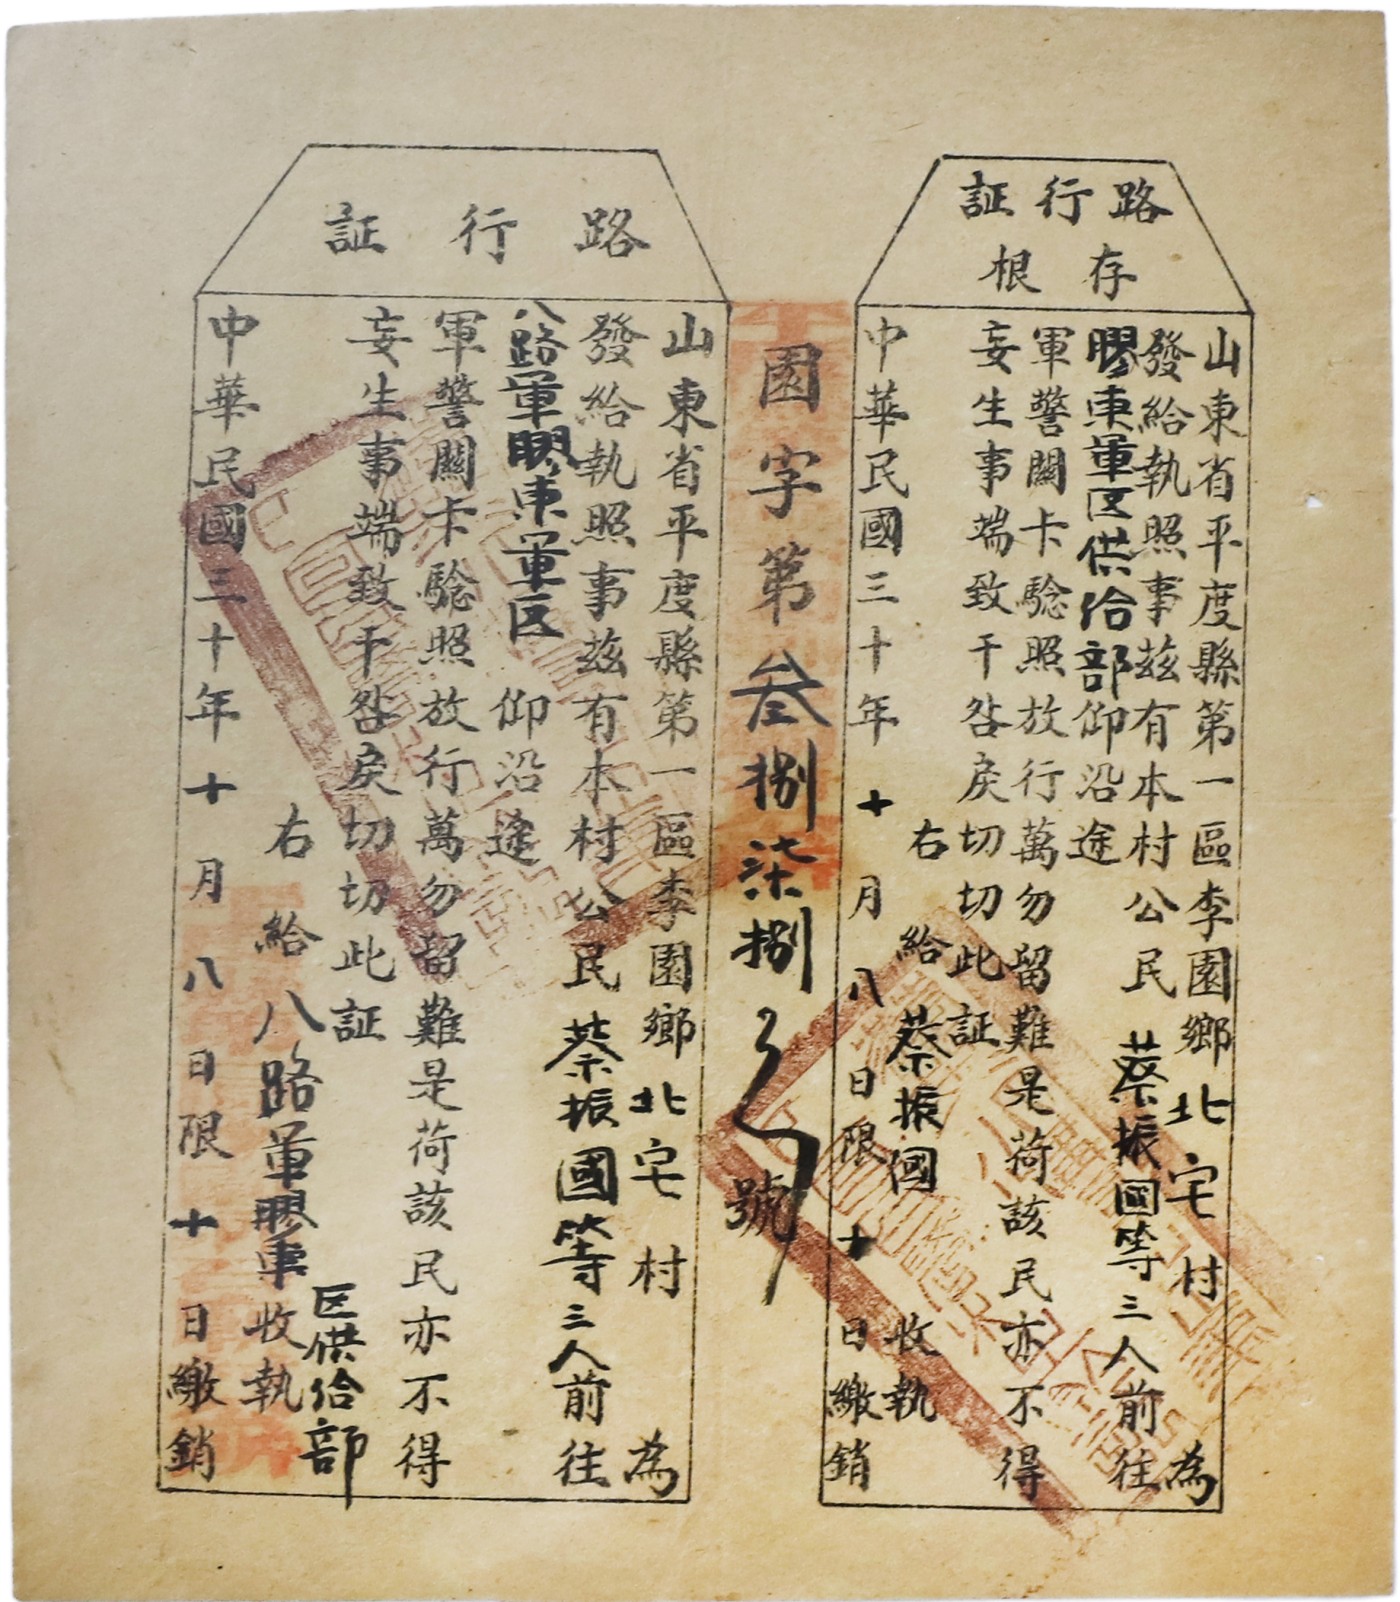 路行証
存根
山東省平度縣第一區李園鄉北宅村為
發給執照事茲有本村公民蔡振國等三人前往
膠東軍区供给部仰沿途
軍警關卡驗照放行萬勿留難是荷該民亦不得
妄生事端致干咎戾切切此証
右給蔡振國收執
中華民國三十年十月八日限十日繳銷
園字第叁捌柒捌號
路行証
山東省平度縣第一區李園鄉北宅村為
發給執照事茲有本村公民蔡振國等三人前往
八路軍膠東軍区仰沿途
軍警關卡驗照放行萬勿留難是荷該民亦不得
妄生事端致干咎戾切切此証
右給八路軍膠東区供给部收執
中華民國三十年十月八日限十日繳銷